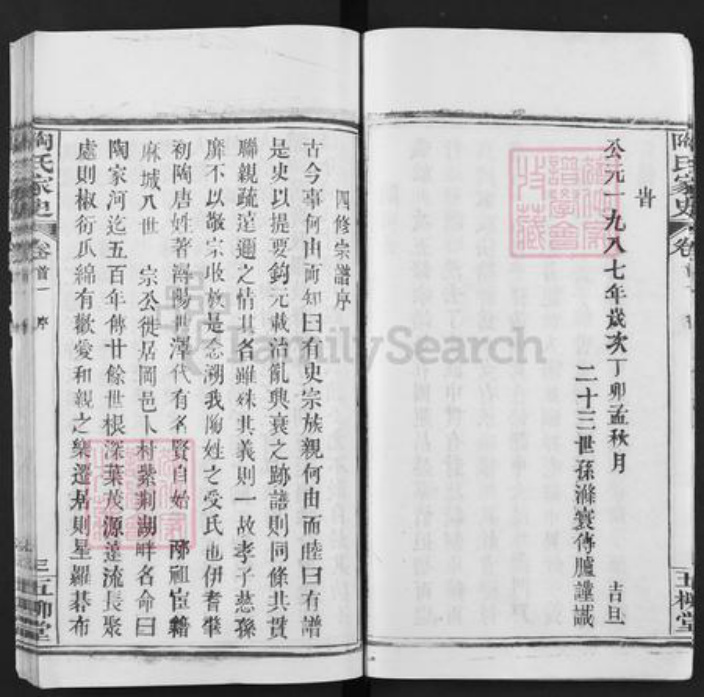 陶氏家史
卷首
五柳堂
旹
公元一九八七年歲次丁卯孟秋月 吉旦
二十三世孫滌寰傳臚謹識
四修宗譜序
古今事何由而知曰有史宗族親何由而睦曰有譜
是史以提要鈎元載治亂興衰之跡譜則同條共貫
聯親疏遠邇之情其名雖殊其義則一故孝子慈孫
靡不以敬宗收族是念溯我陶姓之受氏也伊耆肇
初陶唐姓著潯陽世澤代有名賢自始祖宦籍
麻城八世 宗公徙居岡邑卜村紫荆湖畔名命曰
陶家河迄五百年傳廿餘世根深葉茂源遠流長聚
處則椒衍瓜綿有歡愛和親之樂遷居則星羅碁布
陶氏家史
卷首一 序
三五柳堂
FamilySearch